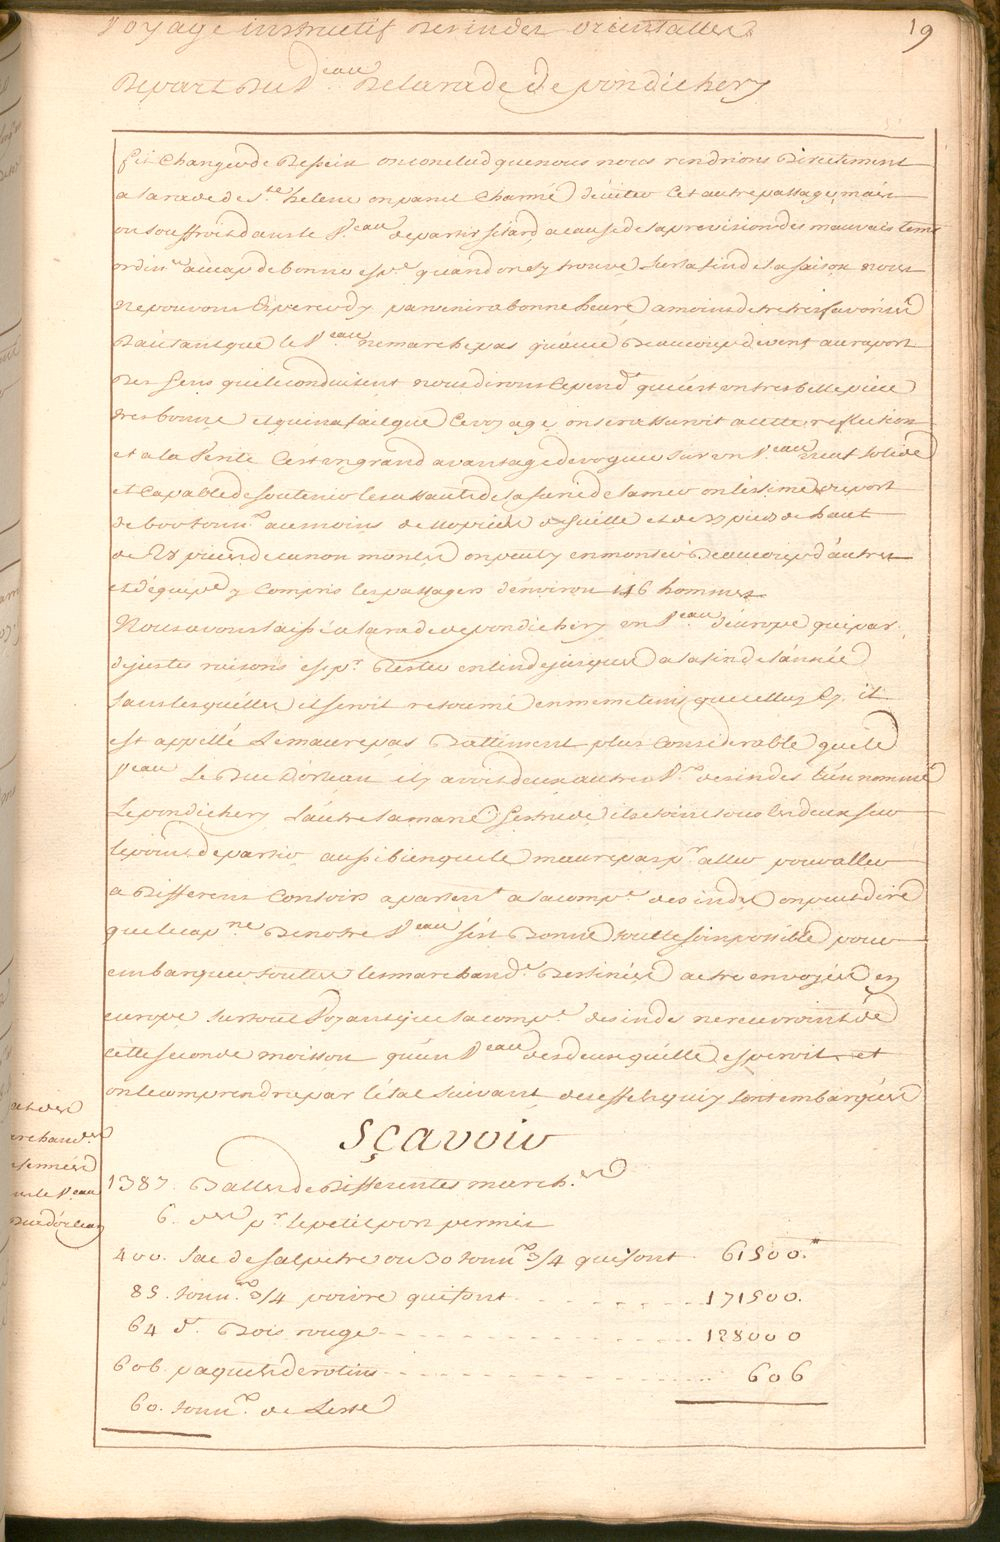 Voyage instructif Des indes orientalles 19
Depart Du V.eau De la rade De pondichery
fit changer de Dessein on conclud que nous nous rendrions Directement
a la rade de S.te helene on parut charmé d'éviter cet autre passage, mais
on souffroit dans le V.eau de partir si tard a cause de la prevision des mauvais tems
ordin.res au cap de bonne esp.ce quand on s'y trouve sur la fin de la saison nous
ne pouvons esperer d'y parvenir a bonne heure a moins d'etre tres favorisé
D'autant que le V.eau ne marche pas qu'avec Beaucoup de vent au raport
Des gens qui le conduisent nous dirons cepend.t que c'est un tres belle piece
tres bonne et qui n'a fait que ce voyage, on se rassuroit a cette reflection
et a la verité c'est un grand avantage de voguer sur un V.eau neuf solide
et capable de soutenir les assauts de la furie de la mer on l'estime du port
de 600 tonn.x au moins de 110 pieds de quille et de 27 pieds de haut
de 28 pieces de canon montés on peut y en monter Beaucoup d'autres
et d'équip.e y compris les passagers d'environ 146 hommes
Nous avons laissé a la rade de pondichery un V.eau d'europe qui par
de justes raisons est p.r Rester en l'inde jusques a la fin de l'année
sans lesquelles il seroit retourné en meme tems que celluy cy, il
est appellé Le maurepas Battiment plus considerable que le
V.eau Le Duc D'orleans il y avoit deux autres V.x des indes l'un nommé
Le pondichery l'autre la marie Gertrude ils etoient tous les deux sur
le point de partir aussi bien que le maurepas p.r aller pour aller
a Differens contoirs aparten.t a la comp.e des indes on peut dire
que le cap.ne De notre V.eau s'est Donné tout le soin possible pour
embarquer toutes les marchand.s Destinées a etre envoyées en
europe sur tout Voyant que la comp.e des indes ne recevroit de
cette seconde moisson qu'un V.eau des deux qu'elle esperoit et
on le comprendra par l'état suivant des effets qui y sont embarqués
Sçavoir
1387. Balles de Differentes march.ses
6. des p.r le petit port permis
400. sac de salpetre ou 30 tonn.x 3/4 qui font 61500.#
85. tonn.x 3/4 poivre qui font 171500.
64 d.o Bois rouge 128000
606. paquets de rotins 606
60. tonn.x de Leste